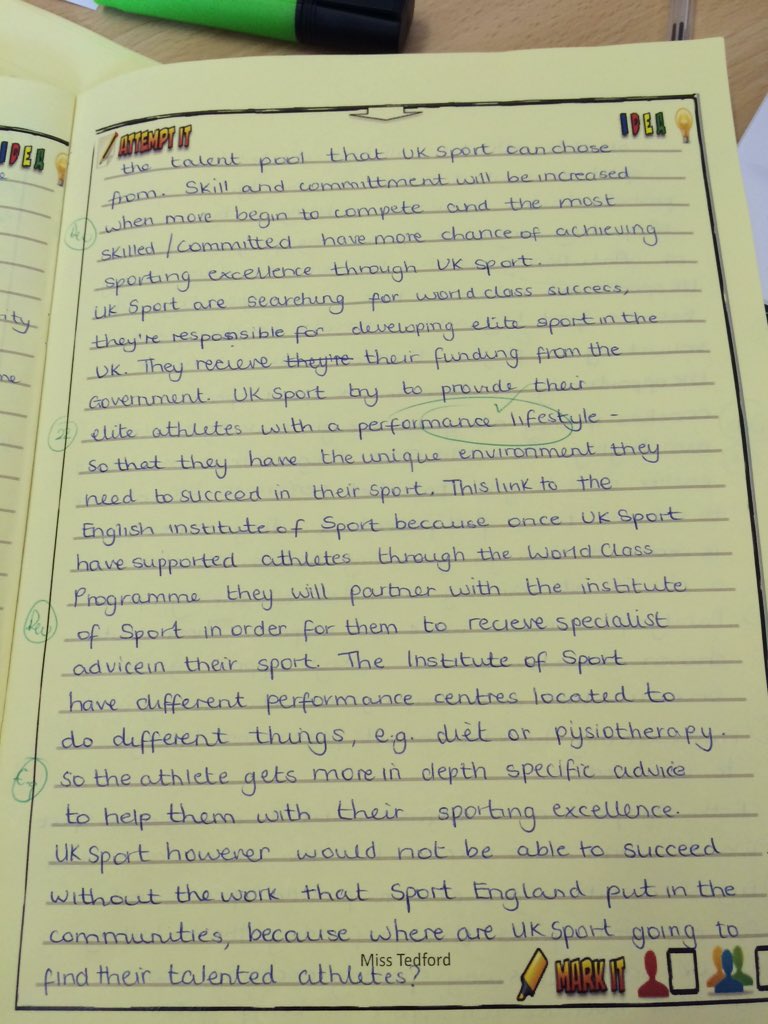 IDEA
ATTEMPT IT
IDEA
the talent pool that UK Sport can chose
from. Skill and committment will be increased
when more begin to compete and the most
skilled/committed have more chance of achieving
sporting excellence through UK Sport.
UK Sport are searching for world class success,
they're responsible for developing elite sport in the
UK. They recieve they're their funding from the
Government. UK Sport try to provide their
elite athletes with a performance lifestyle -
so that they have the unique environment they
need to succeed in their sport. This link to the
English institute of Sport because once UK Sport
have supported athletes through the World Class
Programme they will partner with the institute
of Sport in order for them to recieve specialist
advicein their sport. The Institute of Sport
have different performance centres located to
do different things, e.g. diet or pysiotherapy.
So the athlete gets more in depth specific advice
to help them with their sporting excellence.
UK Sport however would not be able to succeed
without the work that Sport England put in the
communities, because where are UK Sport going to
find their talented athletes?
Miss Tedford
MARK IT